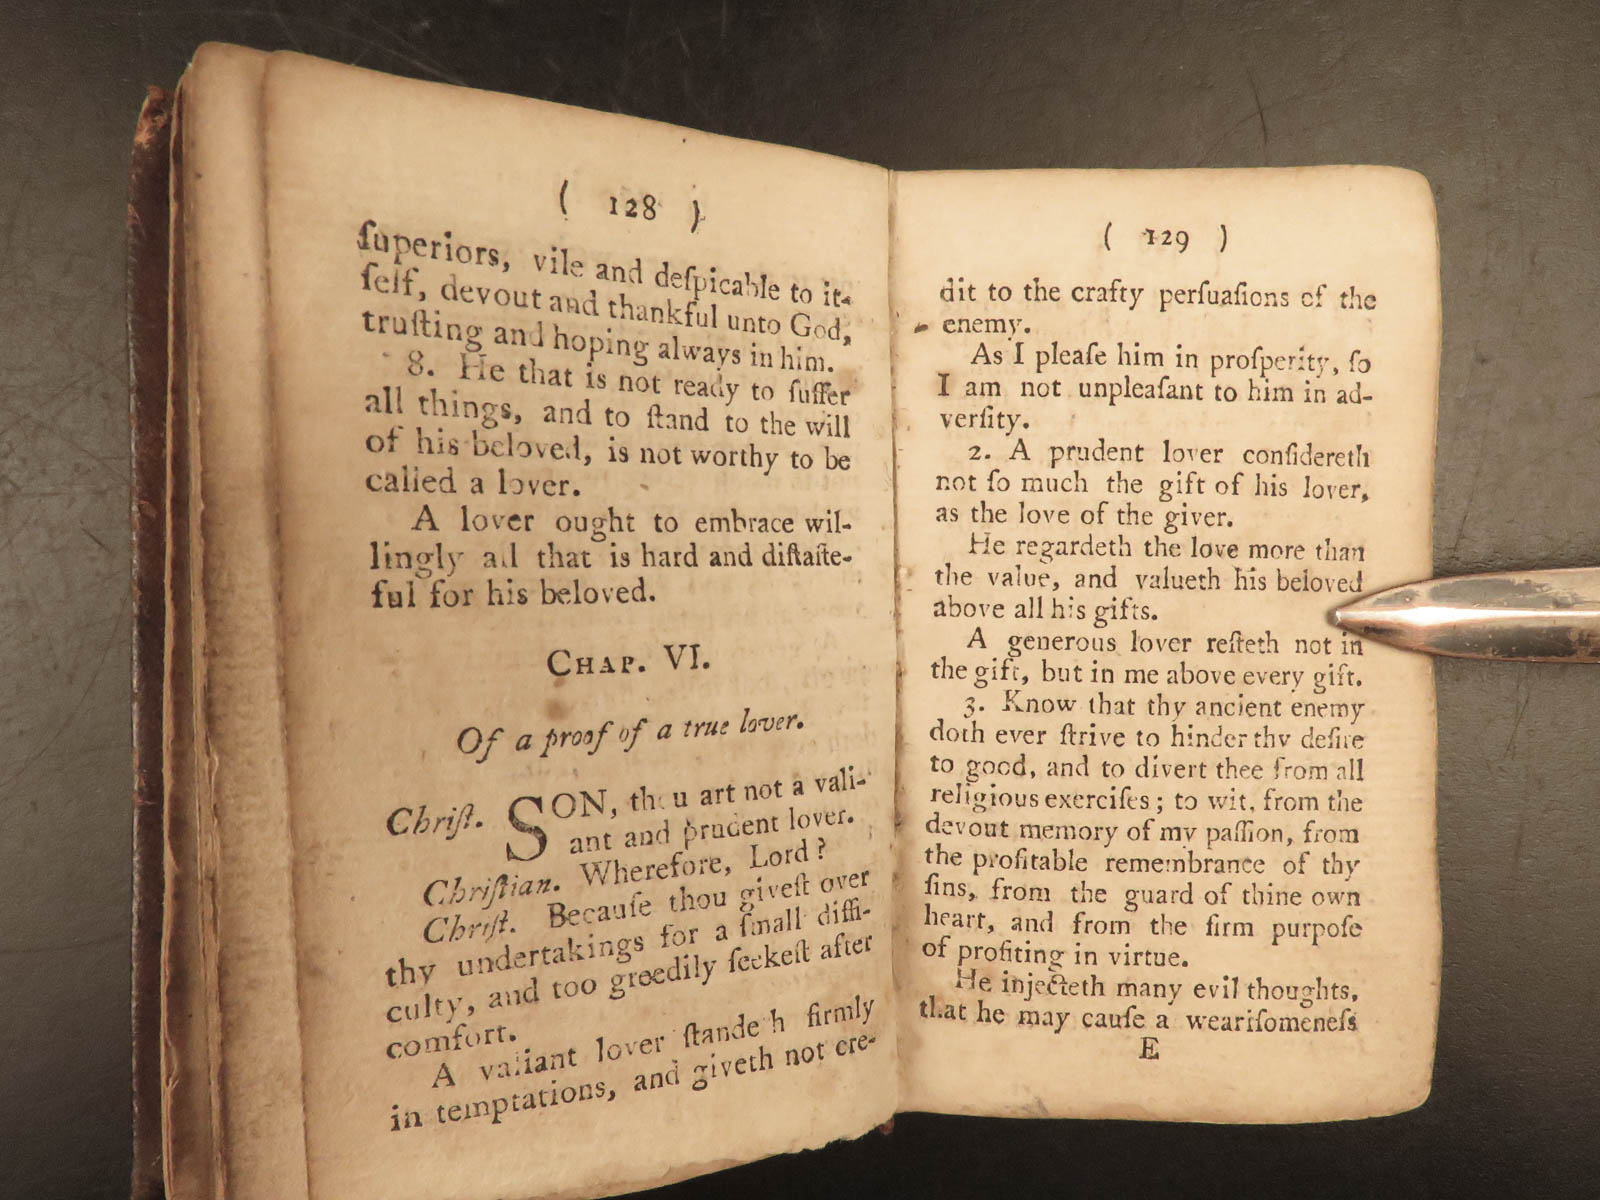 ( 128 )
ſuperiors, vile and deſpicable to it-
ſelf, devout and thankful unto God,
truſting and hoping always in him.
8. He that is not ready to ſuffer
all things, and to ſtand to the will
of his beloved, is not worthy to be
called a lover.
A lover ought to embrace wil-
lingly all that is hard and diſtaſte-
ful for his beloved.
CHAP. VI.
Of a proof of a true lover.
Chriſt. SON, thou art not a vali-
ant and prudent lover.
Chriſtian. Wherefore, Lord?
Chriſt. Becauſe thou giveſt over
thy undertakings for a ſmall diffi-
culty, and too greedily ſeekeſt after
comfort.
A valiant lover ſtandeth firmly
in temptations, and giveth not cre-
( 129 )
dit to the crafty perſuaſions of the
enemy.
As I pleaſe him in proſperity, ſo
I am not unpleaſant to him in ad-
verſity.
2. A prudent lover conſidereth
not ſo much the gift of his lover,
as the love of the giver.
He regardeth the love more than
the value, and valueth his beloved
above all his gifts.
A generous lover reſteth not in
the gift, but in me above every gift.
3. Know that thy ancient enemy
doth ever ſtrive to hinder thy deſire
to good, and to divert thee from all
religious exerciſes; to wit, from the
devout memory of my paſſion, from
the profitable remembrance of thy
ſins, from the guard of thine own
heart, and from the firm purpoſe
of profiting in virtue.
He injecteth many evil thoughts,
that he may cauſe a weariſomeneſs
E